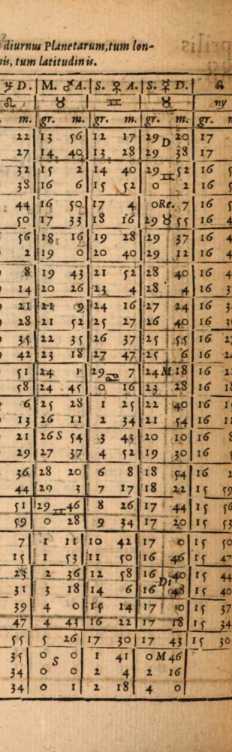 diurnus Planetarum, tum lon-
nis, tum latitudinis.
D. | M. ♂ A. | S. ♀ A. | S. ☿ D. | ☊
♌ | ♉ | ♊ | ♉ | ♍
m. | gr. m. | gr. m. | gr. m. | gr.
22 | 13 56 | 12 17 | 29 D 20 | 17
27 | 14 40 | 13 28 | 29 38 | 17
32 | 15 2 | 14 40 | 29 ♊ 52 | 16
38 | 16 6 | 15 52 | 0 2 | 16
44 | 16 50 | 17 4 | 0 Re. 7 | 16
50 | 17 33 | 18 16 | 29 ♉ 55 | 16
56 | 18 16 | 19 28 | 29 37 | 16
2 | 19 0 | 20 40 | 29 12 | 16
8 | 19 43 | 21 52 | 28 40 | 16
14 | 20 26 | 23 4 | 28 4 | 16
21 | 21 9 | 24 16 | 27 24 | 16
28 | 21 52 | 25 27 | 26 40 | 16
35 | 22 35 | 26 37 | 25 55 | 16
42 | 23 18 | 27 47 | 25 6 | 16
51 | 24 1 | 29 ♋ 7 | 24 M 18 | 16
58 | 24 45 | 0 16 | 23 28 | 16
6 | 25 28 | 1 25 | 22 40 | 16
13 | 26 11 | 2 34 | 21 54 | 16
21 | 26 S 54 | 3 43 | 20 10 | 16
29 | 27 37 | 4 52 | 19 30 | 16
36 | 28 20 | 6 8 | 18 54 | 16
44 | 29 3 | 7 17 | 18 22 | 15
51 | 29 ♊ 46 | 8 26 | 17 44 | 15
59 | 0 28 | 9 34 | 17 20 | 15
7 | 1 11 | 10 42 | 17 0 | 15
15 | 1 53 | 11 50 | 16 46 | 15
23 | 2 36 | 12 58 | 16 40 | 15
31 | 3 18 | 14 6 | 16 Di 48 | 15
39 | 4 0 | 15 14 | 17 0 | 15
47 | 4 43 | 16 22 | 17 18 | 15
55 | 5 26 | 17 30 | 17 43 | 15
35 | 0 0 | 1 41 | 0 M 46
34 | 0 S 0 | 2 4 | 2 16
34 | 0 1 | 2 18 | 4 0